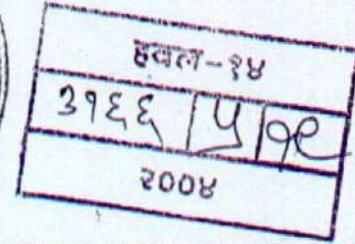 हवल-१४
३१६६ | ५ | १९
२००४